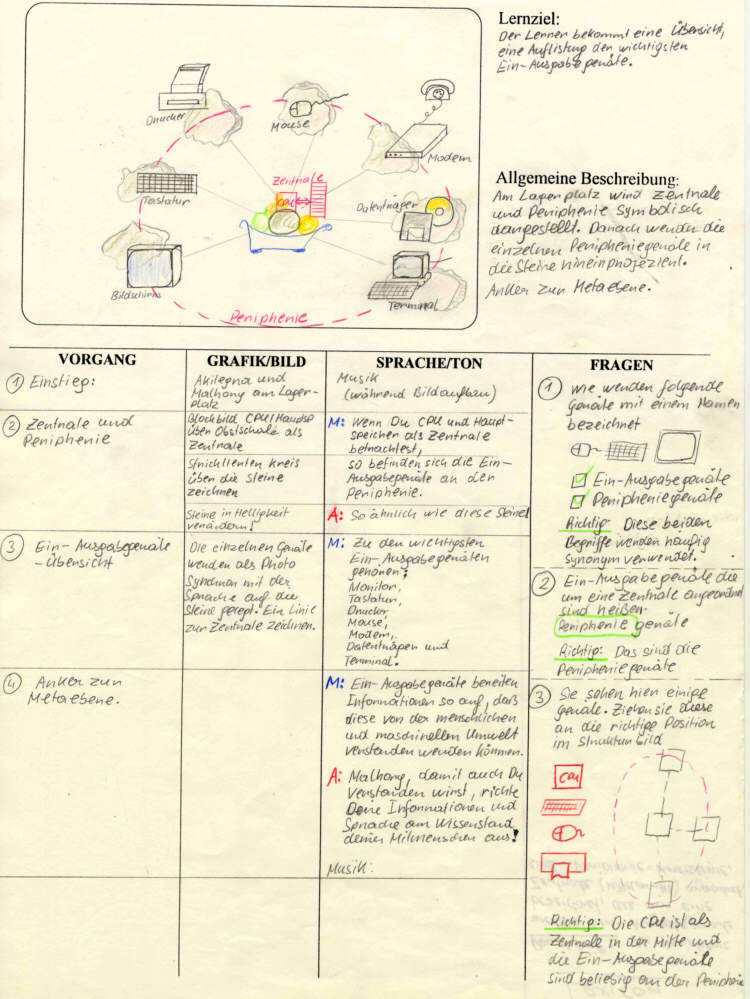 Lernziel:
Der Lerner bekommt eine Übersicht,
eine Auflistung der wichtigsten
Ein-Ausgabegeräte.
Drucker
Mouse
Modem
Zentrale
CPU
Tastatur
Datenträger
Bildschirm
Terminal
Peripherie
Allgemeine Beschreibung:
Am Lagerplatz wird Zentrale
und Peripherie symbolisch
dargestellt. Danach werden die
einzelnen Peripheriegeräte in
die Steine hineinprojeziert.
Anker zur Metaebene.
VORGANG
① Einstieg:
② Zentrale und
Peripherie
③ Ein-Ausgabegeräte
-Übersicht
④ Anker zur
Metaebene.
GRAFIK/BILD
Akilegna und
Malhony am Lager-
platz
Blockbild CPU/Hauptsp
über Obstschale als
Zentrale
Strichlierten Kreis
über die Steine
zeichnen
Steine in Helligkeit
verändern!
Die einzelnen Geräte
werden als Photo
Synchron mit der
Sprache auf die
Steine gelegt. Ein Linie
zur Zentrale zeichnen.
SPRACHE/TON
Musik
(während Bildaufbau)
M: Wenn Du CPU und Haupt-
speicher als Zentrale
betrachtest,
so befinden sich die Ein-
Ausgabegeräte an der
Peripherie.
A: So ähnlich wie diese Steine!
M: Zu den wichtigsten
Ein-Ausgabegeräten
gehören:
Monitor,
Tastatur,
Drucker
Mouse,
Modem,
Datenträger und
Terminal.
M: Ein-Ausgabegeräte bereiten
Informationen so auf, daß
diese von der menschlichen
und maschinellen Umwelt
verstanden werden können.
A: Malhony, damit auch Du
verstanden wirst, richte
Deine Informationen und
Sprache am Wissenstand
deiner Mitmenschen aus!
Musik:
FRAGEN
① Wie werden folgende
Geräte mit einem Namen
bezeichnet
Ein-Ausgabegeräte
Peripheriegeräte
Richtig: Diese beiden
Begriffe werden häufig
Synonym verwendet.
② Ein-Ausgabegeräte die
um eine Zentrale angeordnet
sind heißen.
Peripherie geräte
Richtig: Das sind die
Peripheriegeräte
③ Sie sehen hier einige
Geräte. Ziehen sie diese
an die richtige Position
im Strukturbild
CPU
Richtig: Die CPU ist als
Zentrale in der Mitte und
die Ein-Ausgabegeräte
sind beliebig an der Peripherie